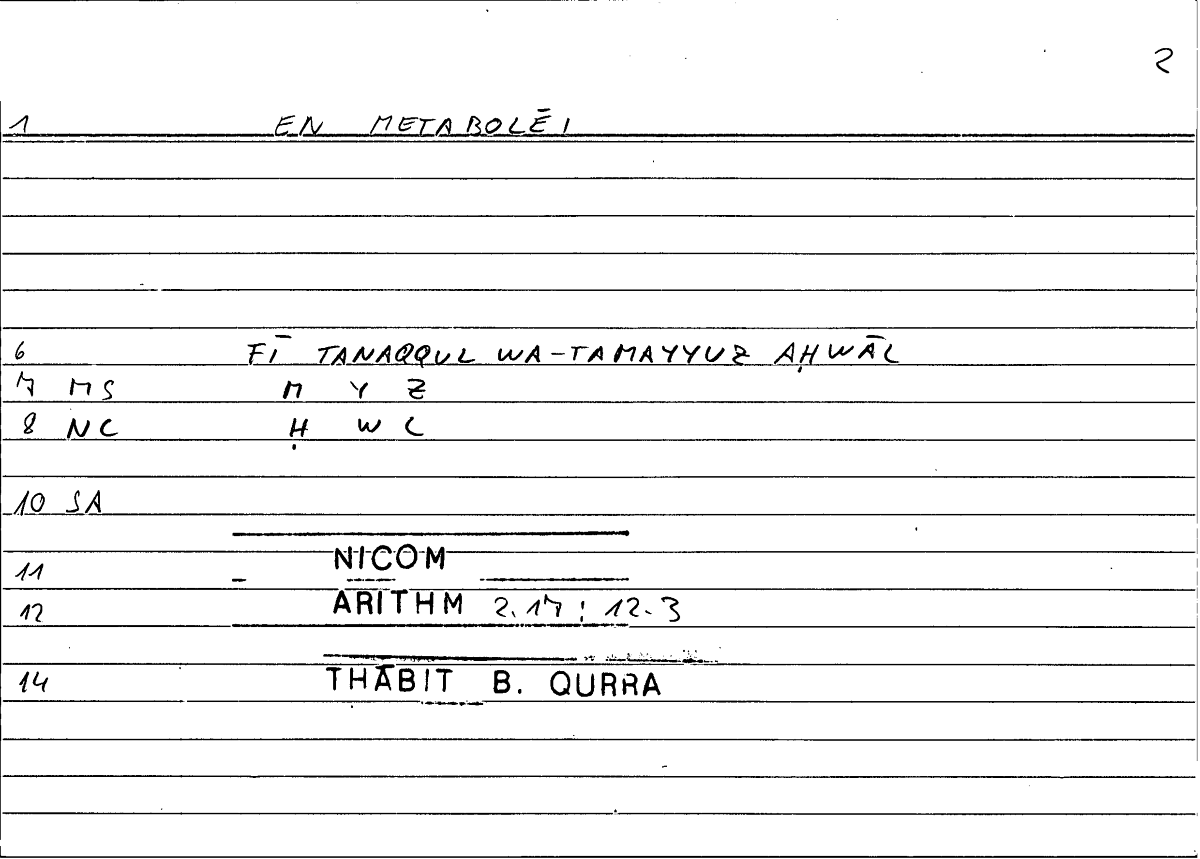 2
1 EN METABOLĒI
6 FĪ TANAQQUL WA-TAMAYYUZ AḤWĀL
7 MS M Y Z
8 NC Ḥ W L
10 SA
11 NICOM
12 ARITHM 2.17 ; 12.3
14 THĀBIT B. QURRA